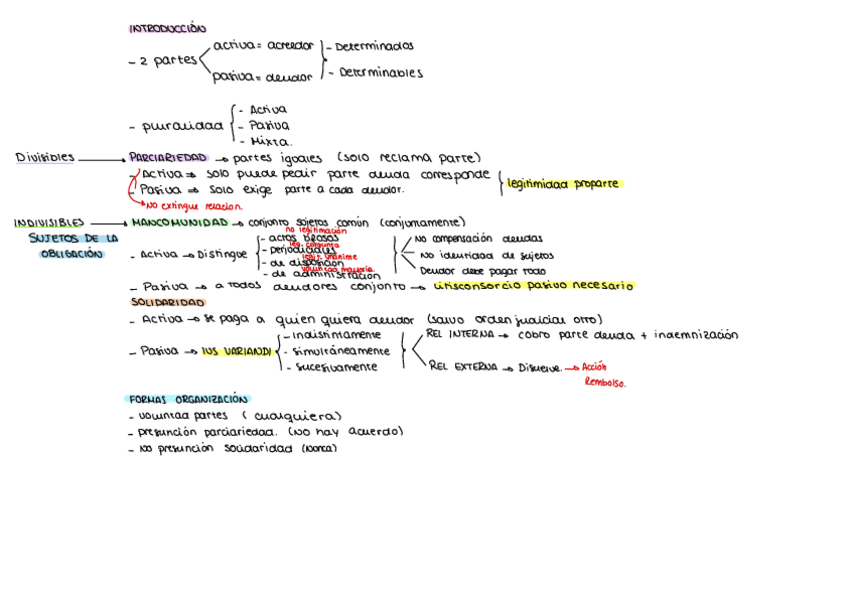 INTRODUCCIÓN
- 2 partes
activa = acreedor
pasiva = deudor
- Determinados
- Determinables
- pluralidad
- Activa
- Pasiva
- Mixta.
Divisibles → PARCIARIEDAD → partes iguales (solo reclama parte)
- Activa ⇒ solo puede pedir parte deuda corresponde
- Pasiva ⇒ solo exige parte a cada deudor.
legitimidad proparte
→ No extingue relacion.
INDIVISIBLES → MANCOMUNIDAD → conjunto sujetos común (conjuntamente)
SUJETOS DE LA
OBLIGACIÓN
- Activa → Distingue
no legitimación
- actos
leg. conjunta
- perjudiciales
legit. unánime
- de disposición
voluntad mayoría
- de administración
No compensación deudas
No identidad de sujetos
Deudor debe pagar todo
- Pasiva → a todos deudores conjunto → litisconsorcio pasivo necesario
SOLIDARIDAD
- Activa → se paga a quien quiera deudor (salvo orden judicial otro)
- Pasiva → IUS VARIANDI
- indistintamente
- simultáneamente
- sucesivamente
REL INTERNA → cobro parte deuda + indemnización
REL EXTERNA → Disuelve. → Acción
Rembolso.
FORMAS ORGANIZACIÓN
- voluntad partes (cualquiera)
- presunción parciariedad. (No hay acuerdo)
- No presunción solidaridad (Nunca)